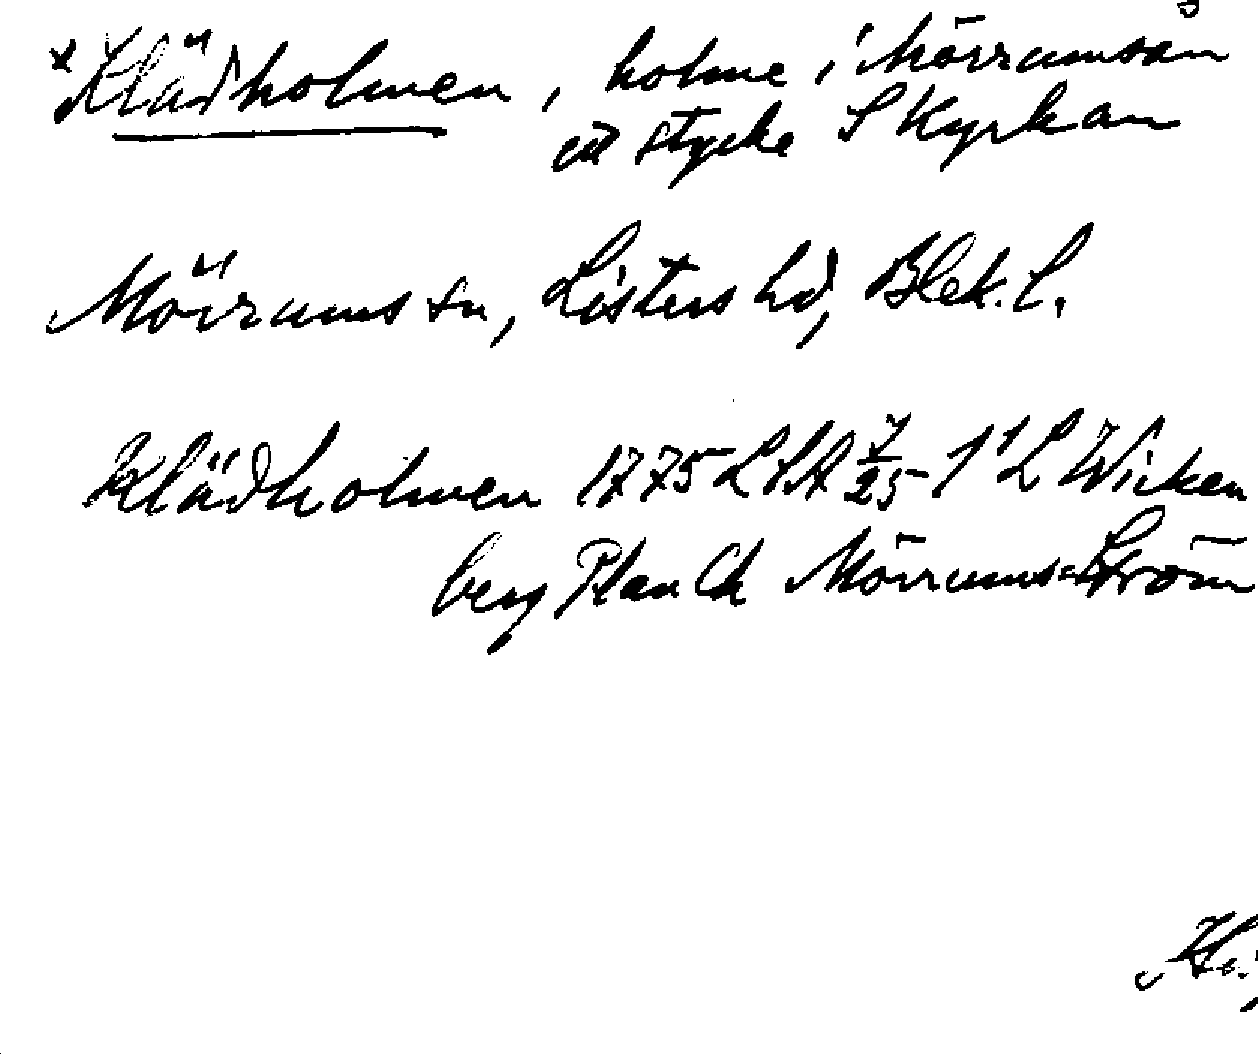 *Klädholmen, holme i Mörrumsån
ett stycke S Kyrkan
Mörrums sn, Listers hd, Blek. l.
Klädholmen 1775 LSA 7/25-1¹ L Wicken
berg Plan Ch Mörrums Ström